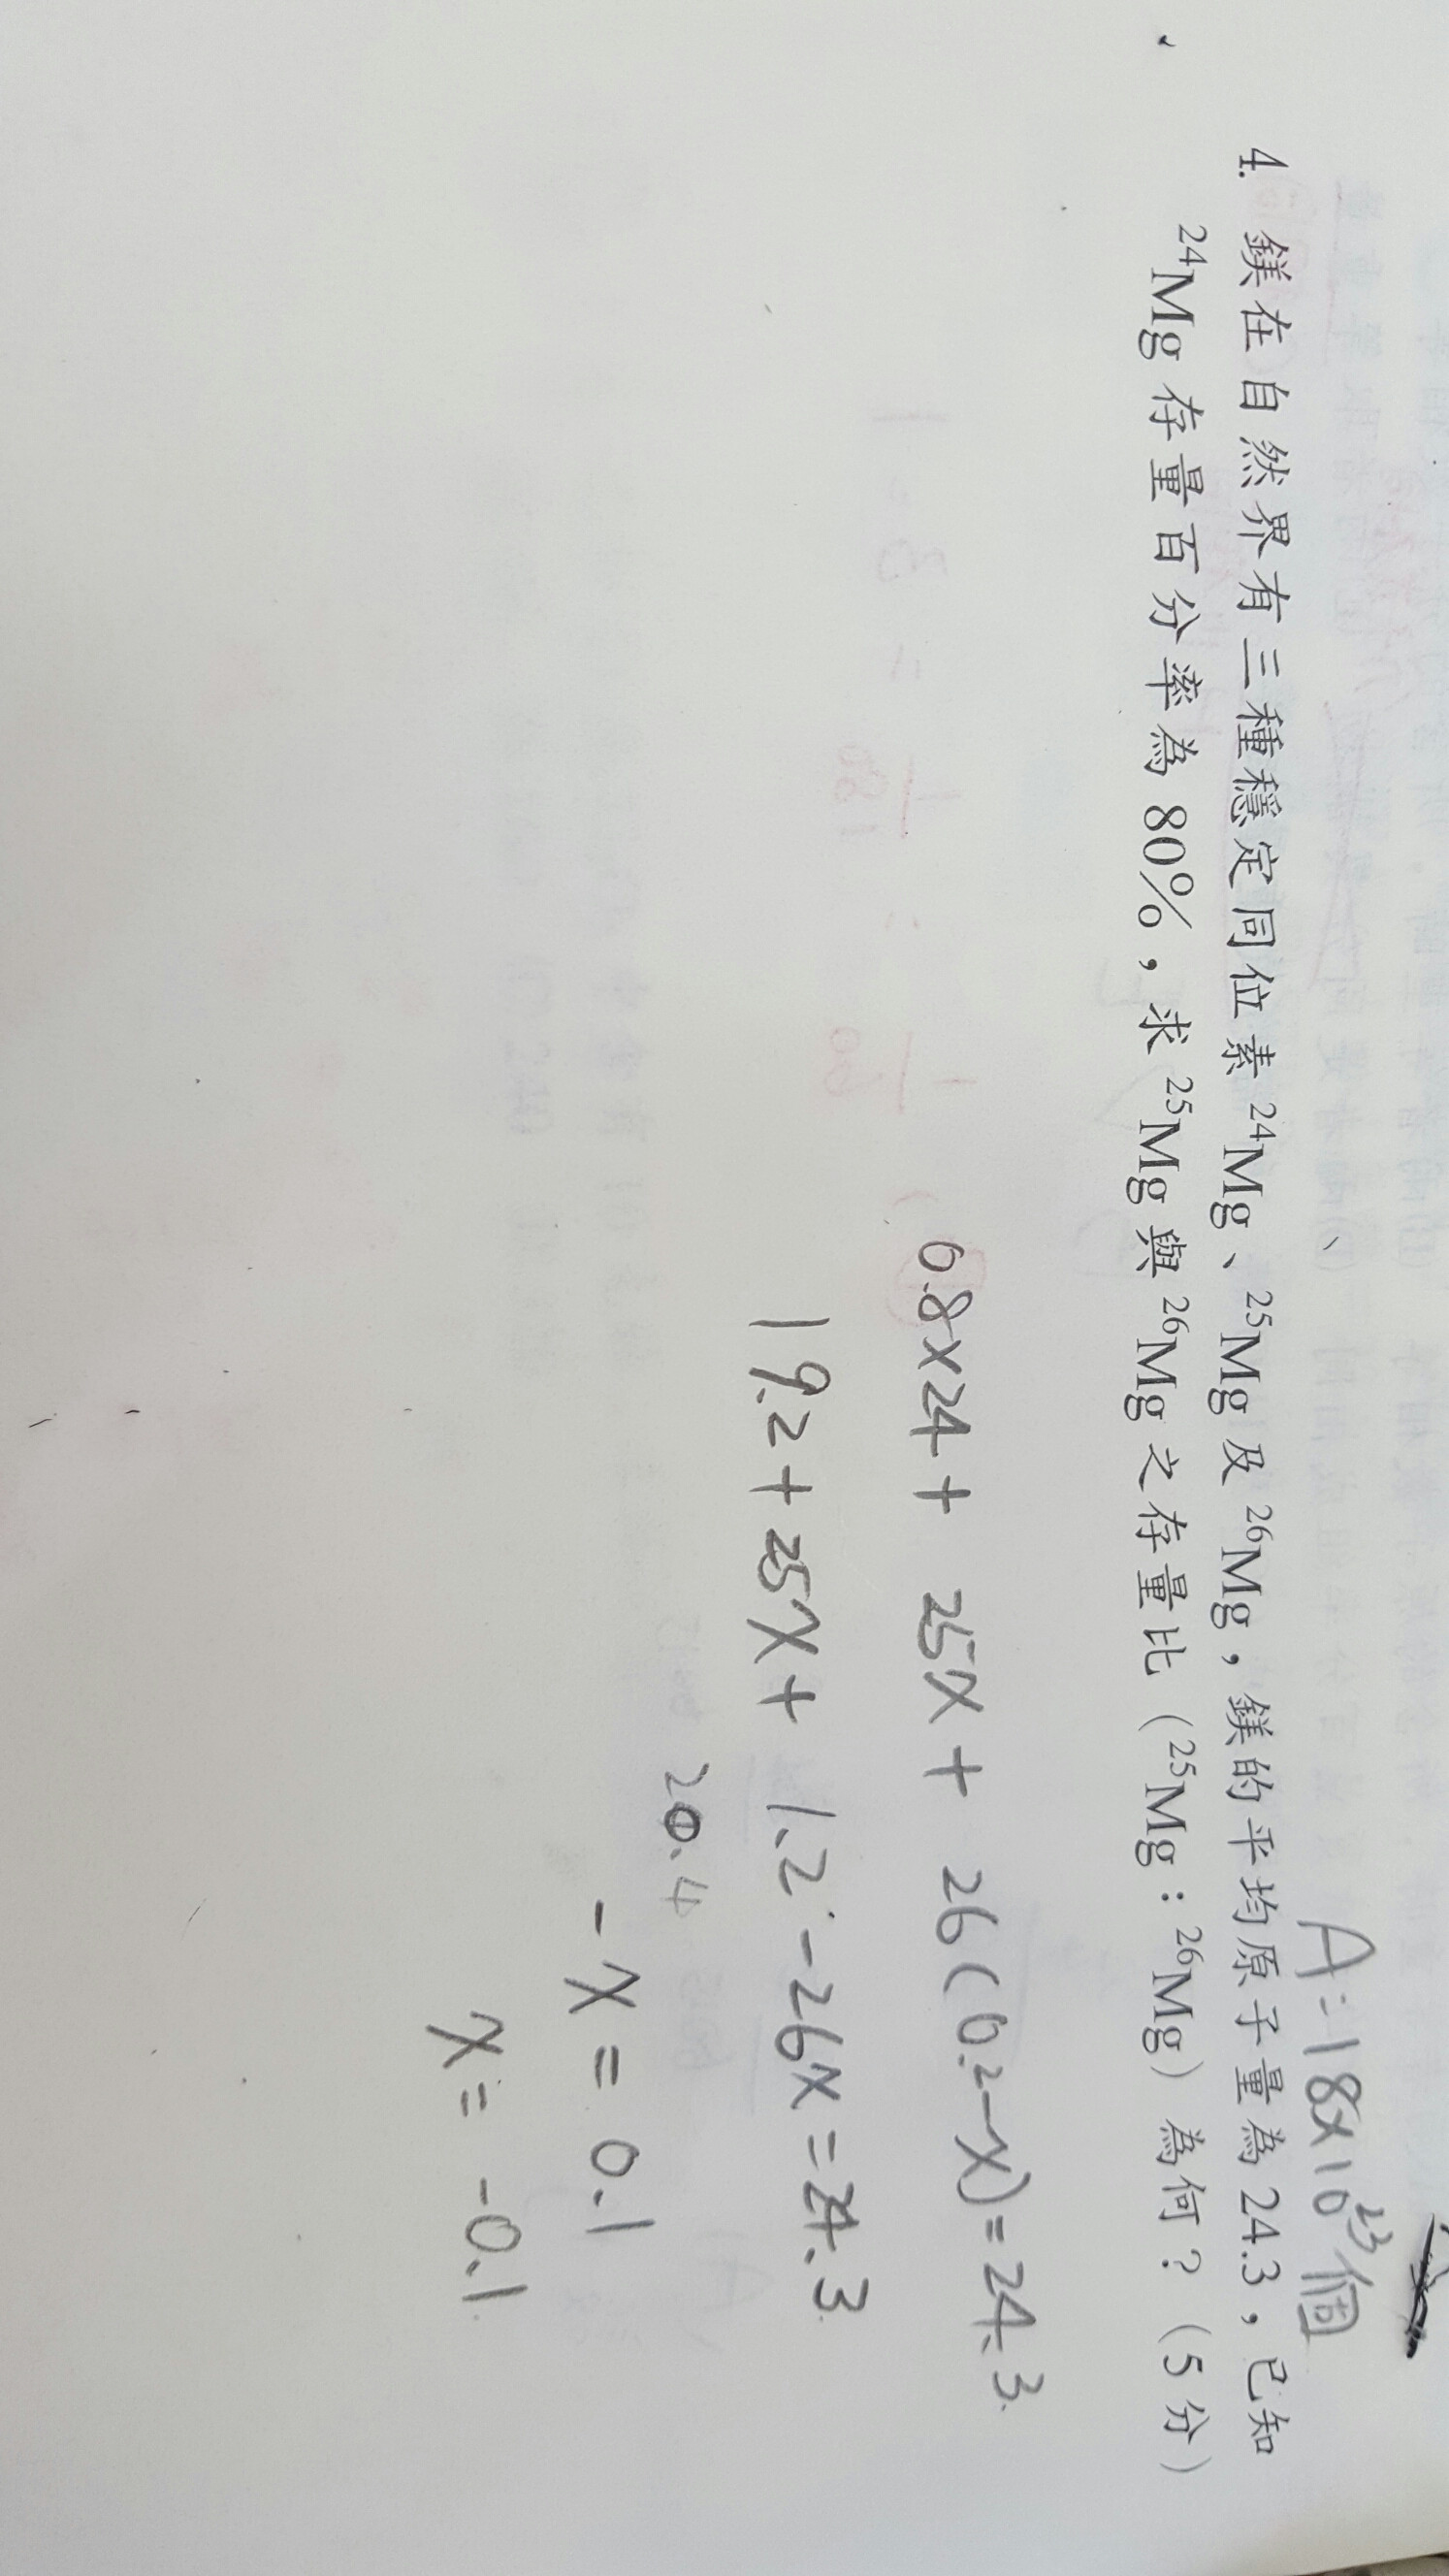 A=18×10²³個
4. 鎂在自然界有三種穩定同位素²⁴Mg、²⁵Mg及²⁶Mg，鎂的平均原子量為24.3，已知
²⁴Mg存量百分率為80%，求²⁵Mg與²⁶Mg之存量比（²⁵Mg：²⁶Mg）為何？（5分）
0.8×24+ 25x+ 26(0.2-x)=24.3
19.2+25x+ 1.2-26x=24.3
20.4
-x=0.1
x=-0.1